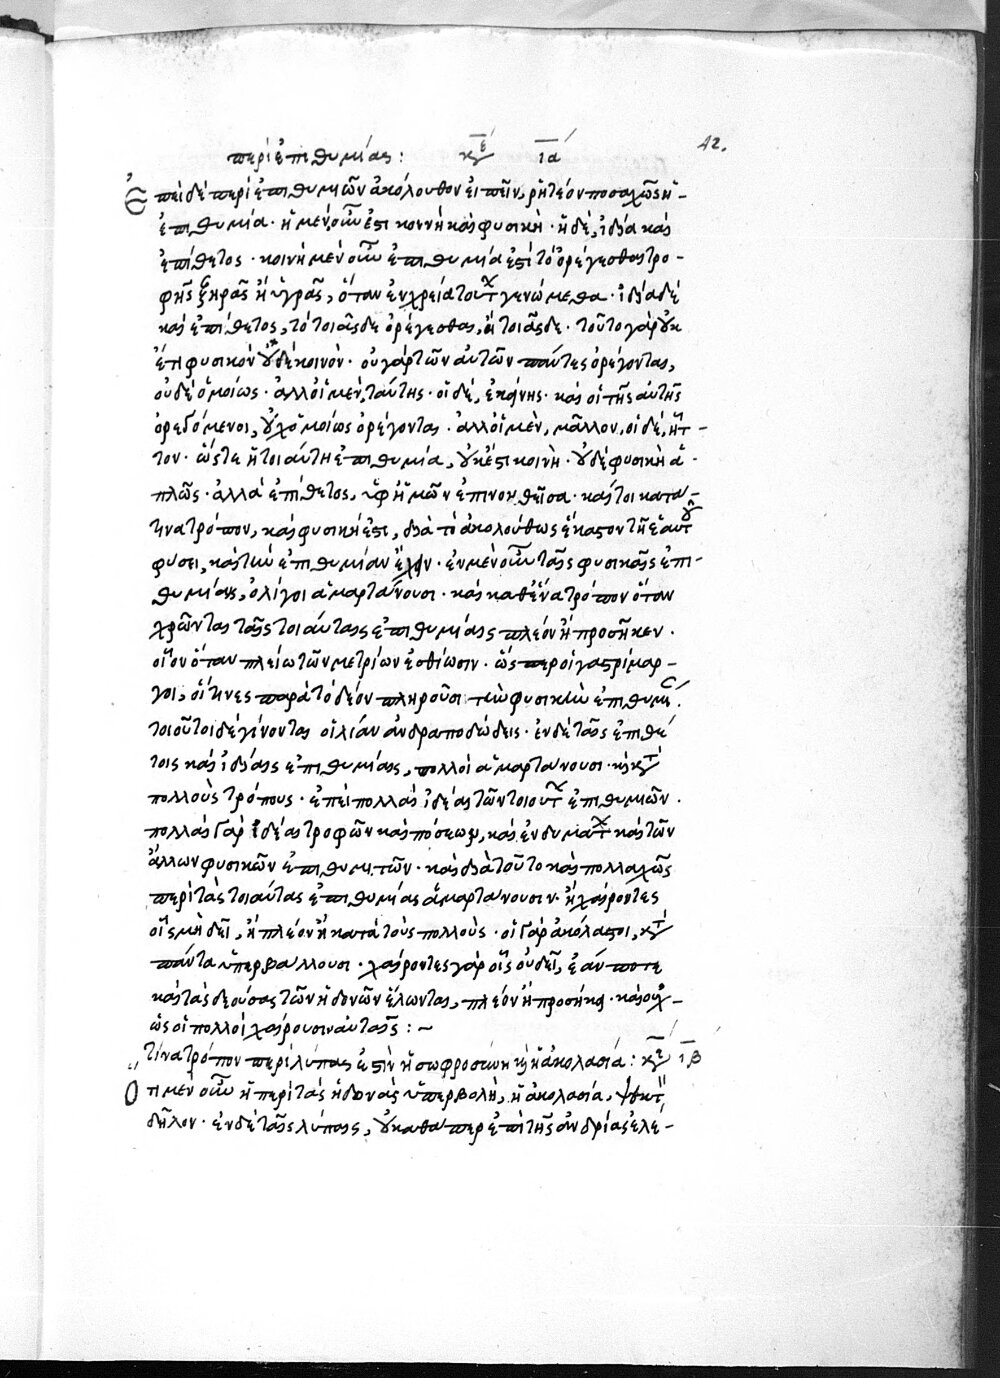 περὶ ἐπιθυμίας: κεφ ια
42.
Ἐπεὶ δὲ περὶ ἐπιθυμιῶν ἀκόλουθον εἰπεῖν, ῥητέον ποσαχῶς ἡ
ἐπιθυμία· ἡ μὲν οὖν ἐστι κοινὴ καὶ φυσικὴ· ἡ δὲ, ἰδία καὶ
ἐπίθετος· κοινὴ μὲν οὖν ἐπιθυμία ἐστὶ τὸ ὀρέγεσθαι τρο-
φῆς ξηρᾶς ἢ ὑγρᾶς, ὅταν ἐν χρείᾳ τούτων γενώμεθα· ἰδία δὲ
καὶ ἐπίθετος, τὸ τοιᾶσδε ὀρέγεσθαι, ἢ τοιᾶσδε· τοῦτο γὰρ οὐκ
ἔτι φυσικὸν οὐδὲ κοινὸν· οὐ γὰρ τῶν αὐτῶν πάντες ὀρέγονται,
οὐδὲ ὁμοίως· ἀλλ' οἱ μὲν, ταύτης· οἱ δὲ, ἐκείνης· καὶ οἱ τῆς αὐτῆς
ὀρεγόμενοι, οὐχ ὁμοίως ὀρέγονται· ἀλλ' οἱ μὲν, μᾶλλον, οἱ δὲ, ἧτ-
τον· ὥστε ἡ τοιαύτη ἐπιθυμία, οὐκ ἔστι κοινὴ· οὐδὲ φυσικὴ ἁ-
πλῶς· ἀλλὰ ἐπίθετος, ὑφ' ἡμῶν ἐπινοηθεῖσα· καίτοι κατά
τινα τρόπον, καὶ φυσική ἐστι, διὰ τὸ ἀκολούθως ἕκαστον τῇ ἑαυτοῦ
φύσει, καὶ τὴν ἐπιθυμίαν ἔχειν· ἐν μὲν οὖν ταῖς φυσικαῖς ἐπι-
θυμίαις, ὀλίγοι ἁμαρτάνουσι· καὶ καθ' ἕνα τρόπον ὅταν
χρῶνται ταῖς τοιαύταις ἐπιθυμίαις πλέον ἢ προσῆκεν·
οἷον ὅταν πλείω τῶν μετρίων ἐσθίωσιν· ὥσπερ οἱ γαστρίμαρ-
γοι, οἵτινες παρὰ τὸ δέον πληροῦσι τὴν φυσικὴν ἐπιθυμί.
τοιοῦτοι δὲ γίνονται οἱ λίαν ἀνδραποδώδεις· ἐν δὲ ταῖς ἐπιθέ
τοις καὶ ἰδίαις ἐπιθυμίαις, πολλοὶ ἁμαρτάνουσι· καὶ κατὰ
πολλοὺς τρόπους· ἐπεὶ πολλαὶ ἰδέαι τῶν τοιούτων ἐπιθυμιῶν·
πολλαὶ γὰρ ἰδέαι τροφῶν καὶ πόσεων, καὶ ἐνδυμάτων καὶ τῶν
ἄλλων φυσικῶν ἐπιθυμητῶν· καὶ διὰ τοῦτο καὶ πολλαχῶς
περὶ τὰς τοιαύτας ἐπιθυμίας ἁμαρτάνουσιν· ἢ χαίροντες
οἷς μὴ δεῖ, ἢ πλέον ἢ κατὰ τοὺς πολλοὺς· οἱ γὰρ ἀκόλαστοι, κατὰ
πάντα ὑπερβάλλουσι· χαίροντες γὰρ οἷς οὐ δεῖ, ἐάν ποτε
καὶ τὰς δεούσας τῶν ἡδονῶν ἕλωνται, πλέον ἢ προσήκει· καὶ οὐχ
ὡς οἱ πολλοὶ χαίρουσιν αὐταῖς: ~
τίνα τρόπον περὶ λύπας ἐστὶν ἡ σωφροσύνη καὶ ἡ ἀκολασία: κεφ ιβ
Ὅτι μὲν οὖν ἡ περὶ τὰς ἡδονὰς ὑπερβολὴ, ἡ ἀκολασία, ψεκτὴ,
δῆλον· ἐν δὲ ταῖς λύπαις, οὐ καθάπερ ἐπὶ τῆς ἀνδρίας ἐλε-